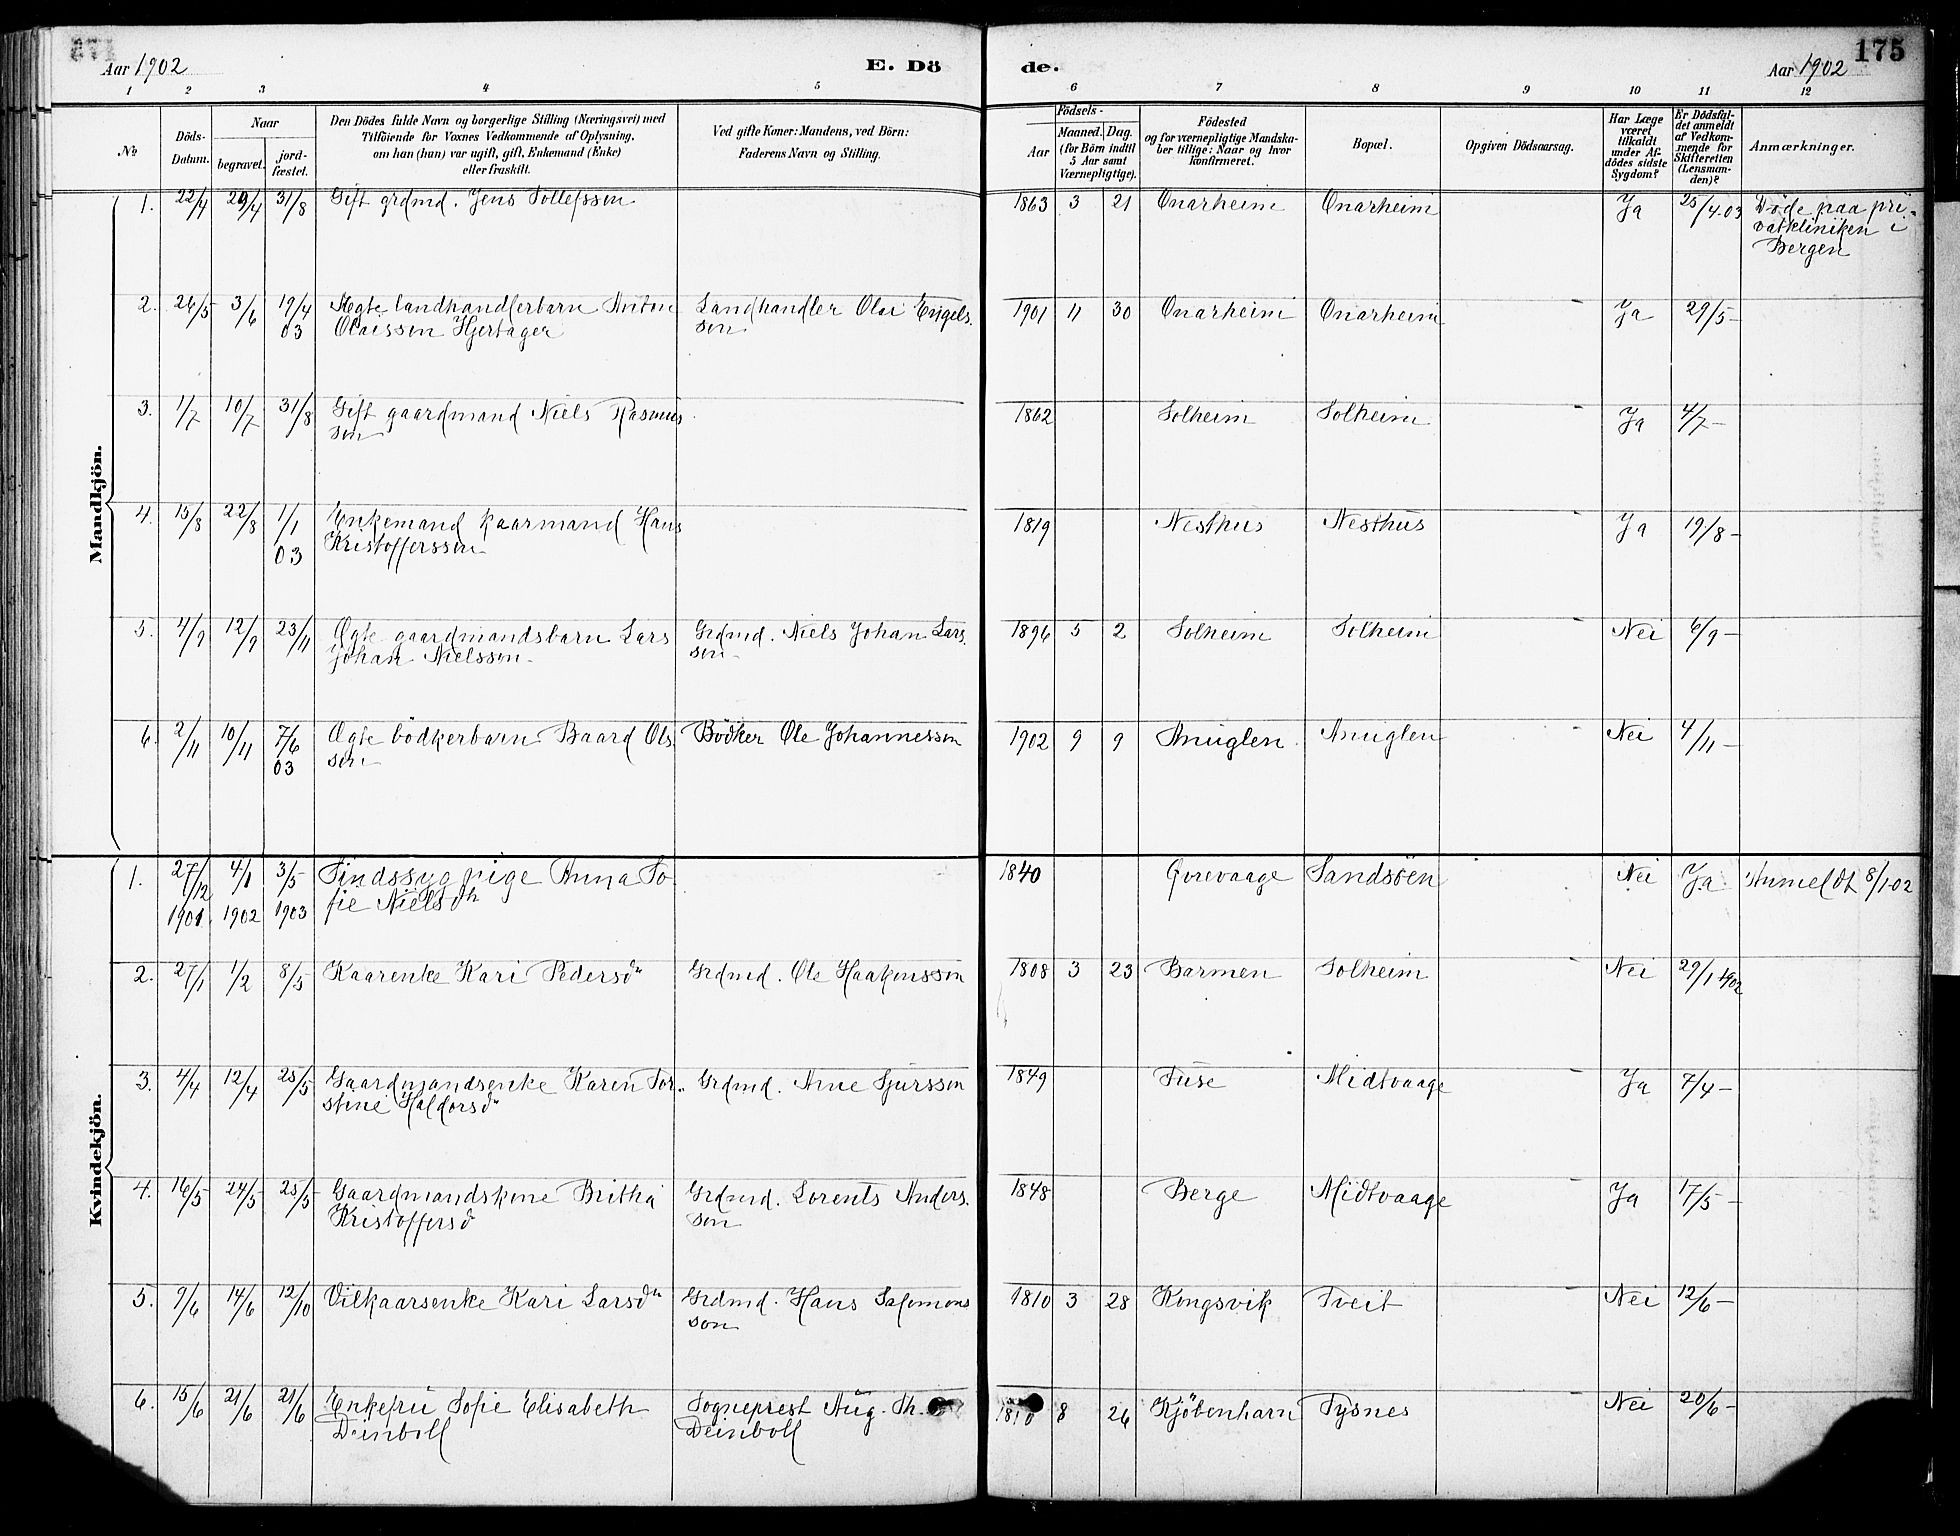 Aar 1902
E. Dö
de.
Aar 1902
175
1 2 3 4 5 6 7 8 9 10 11 12
№
Döds-Datum.
Naar
begravet.
jord-fæstet.
Den Dödes fulde Navn og borgerlige Stilling (Næringsvei) med
Tilföiende for Voxnes Vedkommende af Oplysning,
om han (hun) var ugift, gift, Enkemand (Enke)
eller fraskilt.
Ved gifte Koner: Mandens, ved Börn:
Faderens Navn og Stilling.
Födsels-
Aar
Maaned. Dag.
(for Börn indtil
5 Aar samt
Værnepligtige).
Födested
og for værnepligtige Mandska-
ber tillige: Naar og hvor
konfirmeret.
Bopæl.
Opgiven Dödsaarsag.
Har Læge
været
tilkaldt
under Af-
dödes sidste
Sygdom?
Er Dödsfal-
det anmeldt
af Vedkom-
mende for
Skifteretten
(Lensman-
den)?
Anmærkninger.
Mandkjön.
1. 22/4 29/4 31/8 Gift grdmd. Jens Tollefssen 1863 3 21 Onarheim Onarheim - Ja 25/4.03 Døde paa pri-
vatkliniken i
Bergen
2. 26/5 3/6 19/4 Ægte landhandlerbarn Anton Landhandler Olai Engels- 1901 11 30 Onarheim Onarheim - Ja 29/5-
03 Olaisson Hjertager son
3. 1/7 10/7 31/8 Gift gaardmand Niels Rasmus 1862 Solheim Solheim - Ja 4/7-
son
4. 15/8 22/8 1/1 Enkemand kaarmand Hans 1819 Nesthus Nesthus - Ja 19/8-
03 Kristofferssen
5. 4/9 12/9 23/11 Ægte gaardmandsbarn Lars Grdmd. Niels Johan Lars- 1896 5 2 Solheim Solheim - Nei 6/9-
Johan Nielsson son
6. 2/11 10/11 7/6 Ægte bödkerbarn Baard Ols- Bödker Ole Johannesson 1902 9 9 Anuglen Anuglen - Nei 4/11-
03 son
Kvindekjön.
1. 27/12 4/1 3/5 Sindssyg pige Anna So 1840 Gorevaage Sandsöen - Nei Ja Anmeldt 8/1.02
1901 1902 1903 fie Nielsdn
2. 27/1 1/2 8/5 Kaarenke Kari Pedersdn Grdmd. Ole Haakonsson 1808 3 23 Barmen Solheim - Nei 29/1 1902
3. 4/4 12/4 25/5 Gaardmandsenke Karen Tor- Grdmd. Arne Sjursson 1849 Fuse Midtvaage - Ja 7/4-
stine Haldorsdn
4. 16/5 24/5 25/5 Gaardmandskone Britha Grdmd. Lorents Anders- 1848 Berge Midtvaage - Ja 17/5-
Kristoffersd son
5. 9/6 14/6 12/10 Vilkaarsenke Kari Larsdn Grdmd. Hans Salomons 1810 3 28 Kongsvik Tveit - Nei 12/6-
son
6. 15/6 21/6 21/6 Enkefru Sofie Elisabeth Sogneprest Aug. Th. 1810 8 26 Kjöbenhavn Tysnes - Nei 20/6-
Deinboll Deinboll